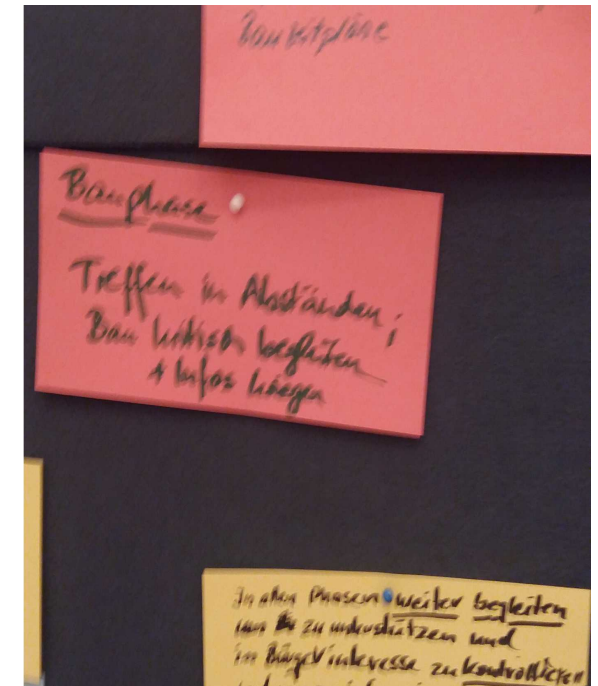 Bauzeitpläne
Bauphase
Treffen in Abständen ;
Bau kritisch begleiten
+ Infos kriegen
In allen Phasen weiter begleiten
um zu unterstützen und
im Bürgerinteresse zu kontrollieren